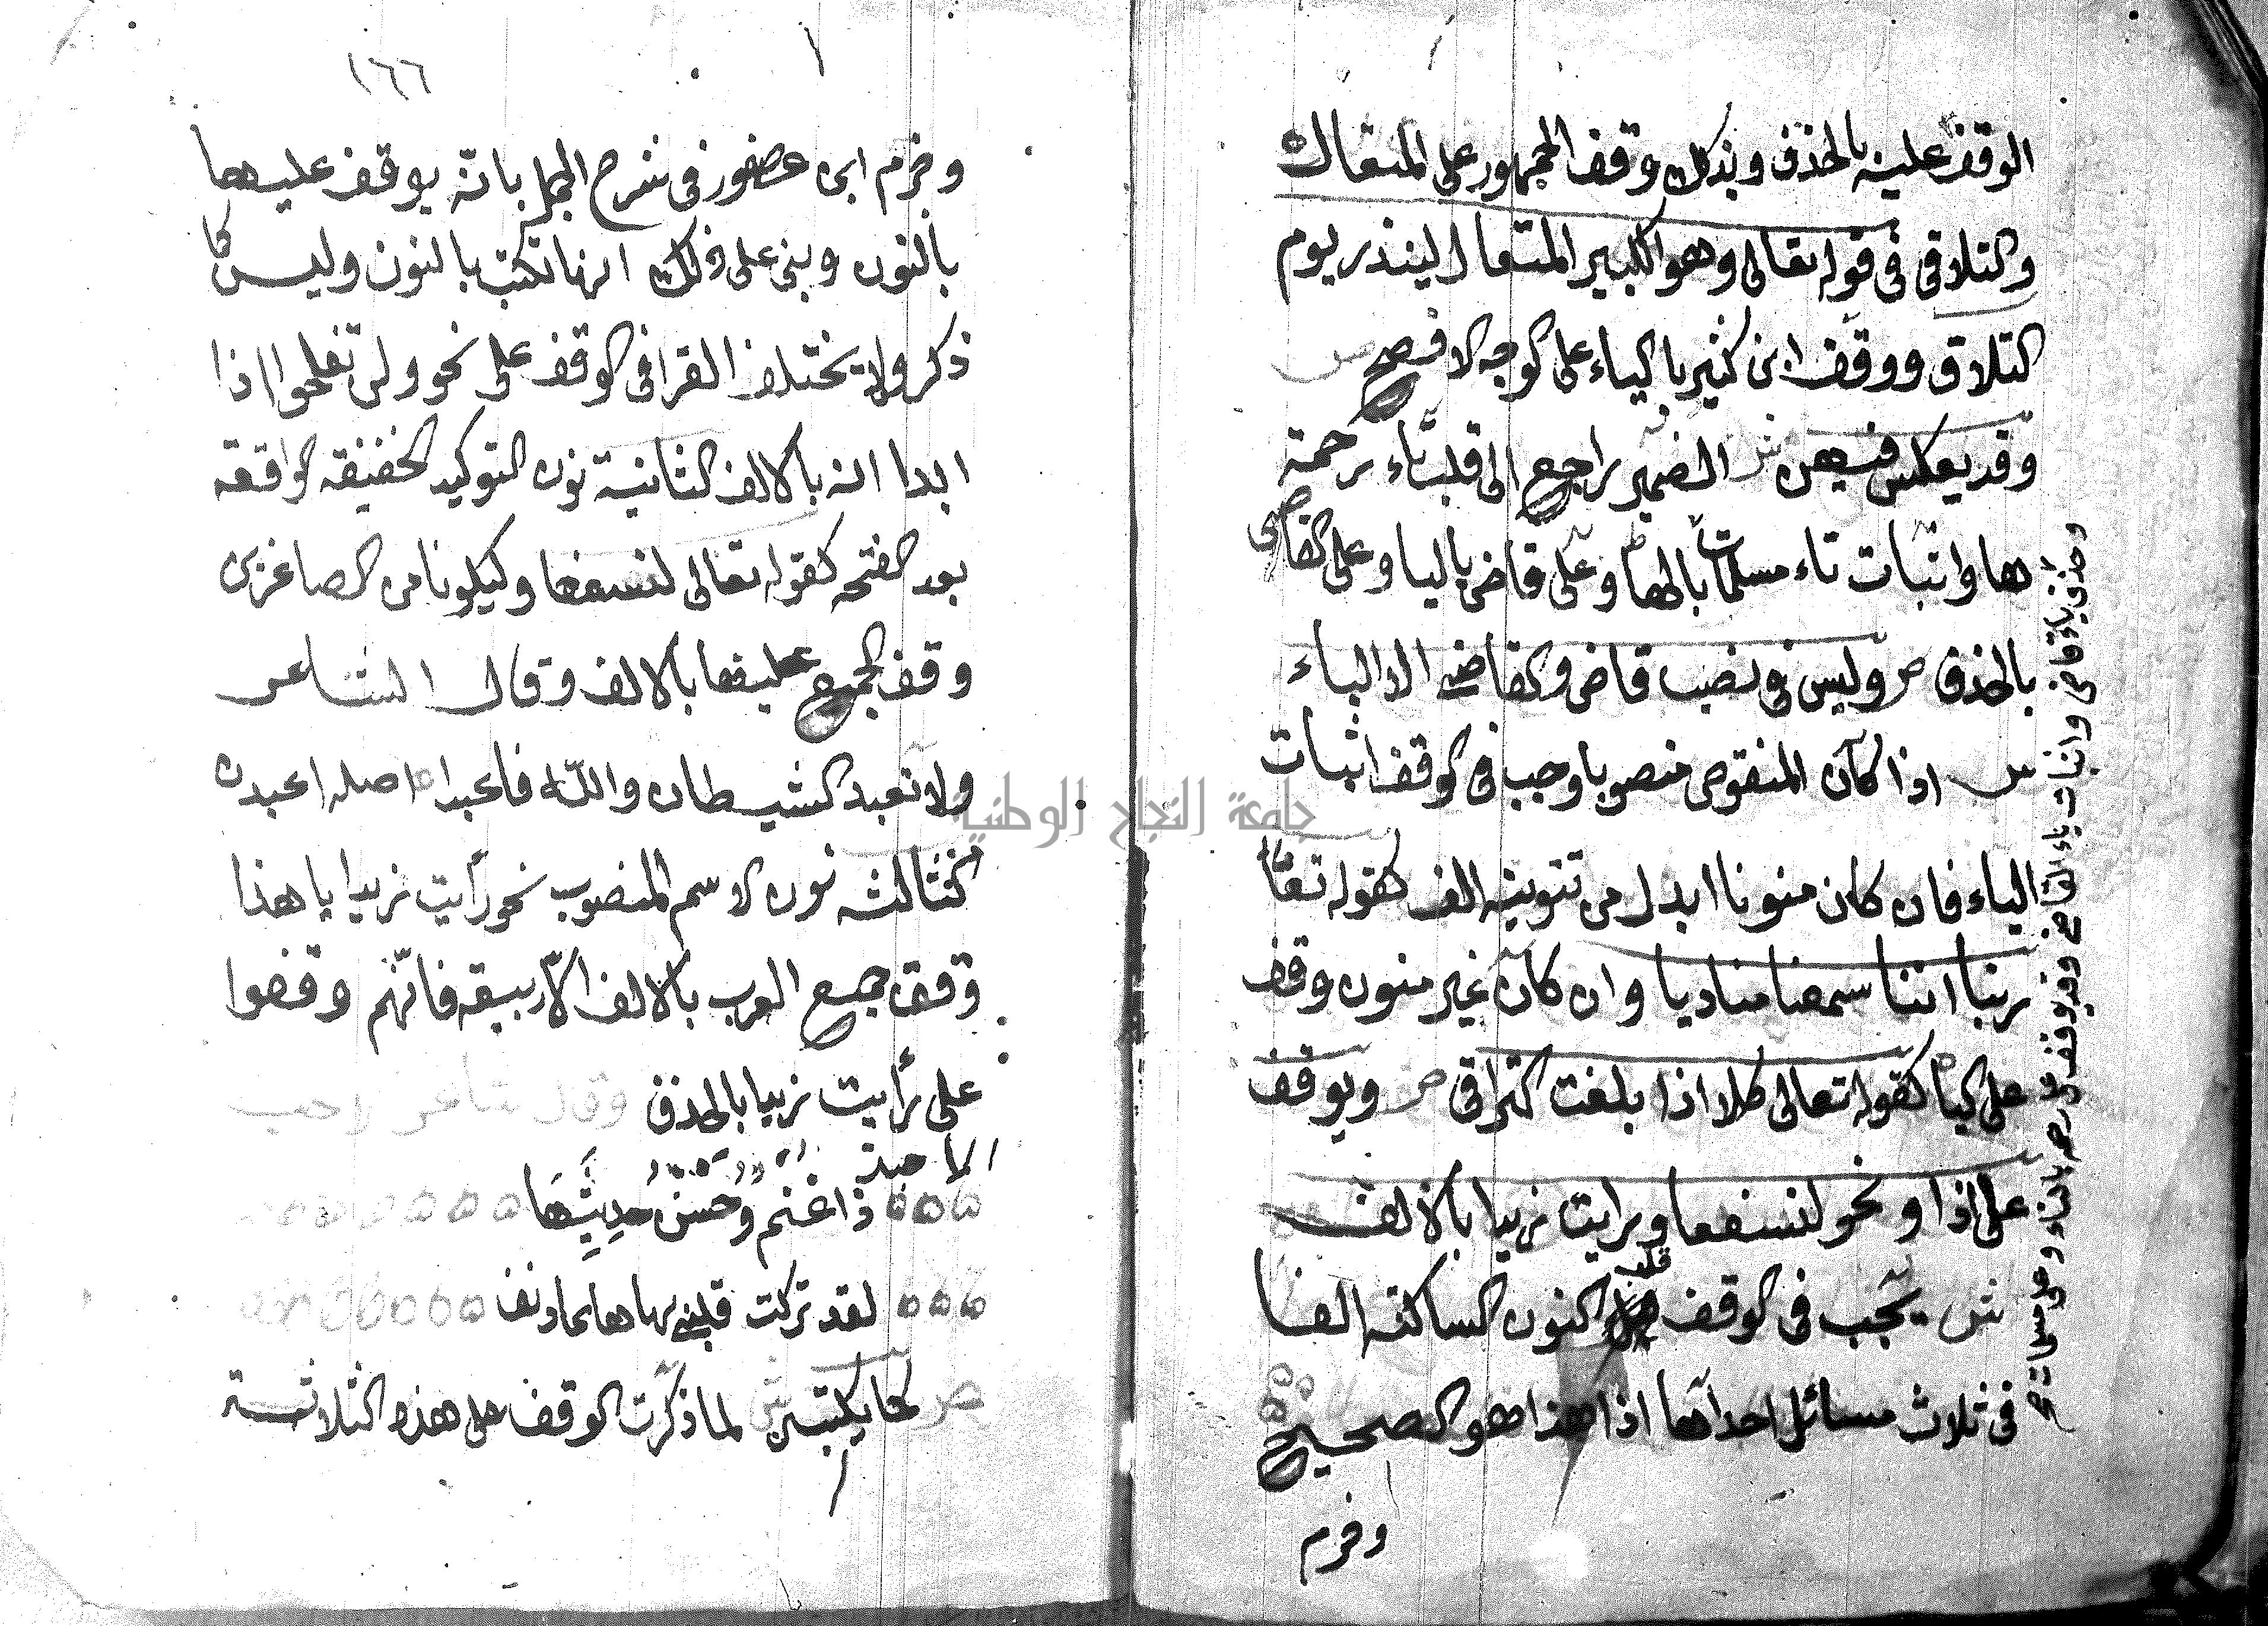 الوقف عليه بالحذف وبذلك وقف الجمهور على المتعال
والتلاقي في قوله تعالى وهو الكبير المتعال لينذر يوم
التلاق ووقف ابن كثير بالياء على الوجه الافصح ص
وقد يعكس فيهن ش الضمير راجع الى قلب تاء رحمة
ها واثبات تاء مسلمات بالها وعلى قاضي باليا وعلى القاضي
بالحذف ص وليس في نصب قاض والقاضي الا الياء
ش اذا كان المنقوص منصوبا وجب في الوقف اثبات
الياء فان كان منونا ابدل من تنوينه الف كقوله تعا
ربنا اننا سمعنا مناديا وان كان غير منون وقف
على اليا كقوله تعالى كلا اذا بلغت التراقي ص ويوقف
على اذا ونحو لنسفعا ورايت زيدا بالالف
ش يجب في الوقف قلب النون الساكنة الفا
في ثلاث مسائل احداها اذا هذا هو الصحيح
وخرم
وحذف ياء قاض واثبات ياء القاضي وقد يوقف على رحمه بالتاء وعلى مسلمات
١٦٦
وخرم ابن عصفور في شرح الجمل بانه يوقف عليها
بالنون وبنى على ذلك انها تكتب بالنون وليس كما
ذكر ولا يختلف القرا في الوقف على نحو ولن تفلحوا اذا
ابدا انه بالالف الثانية نون التوكيد الخفيفه الواقعه
بعد الفتحه كقوله تعالى لنسفعا وليكونا من الصاغرين
وقف الجميع عليها بالالف وقال الشاعر
ولا تعبد الشيطان والله فاعبدا اصله اعبدن
الثالثه نون الاسم المنصوب نحو رايت زيدا يا هذا
وقف جميع العرب بالالف الا ربيعه فانهم وقفوا
على رأيت زيدا بالحذف وقال شاعر
الا حبذا غنم وحسن حديثها
لقد تركت قلبي بها هايما دنف
ص كما يكتبن ش لما ذكرت الوقف على هذه الثلاثة
جامعة النجاح الوطنية